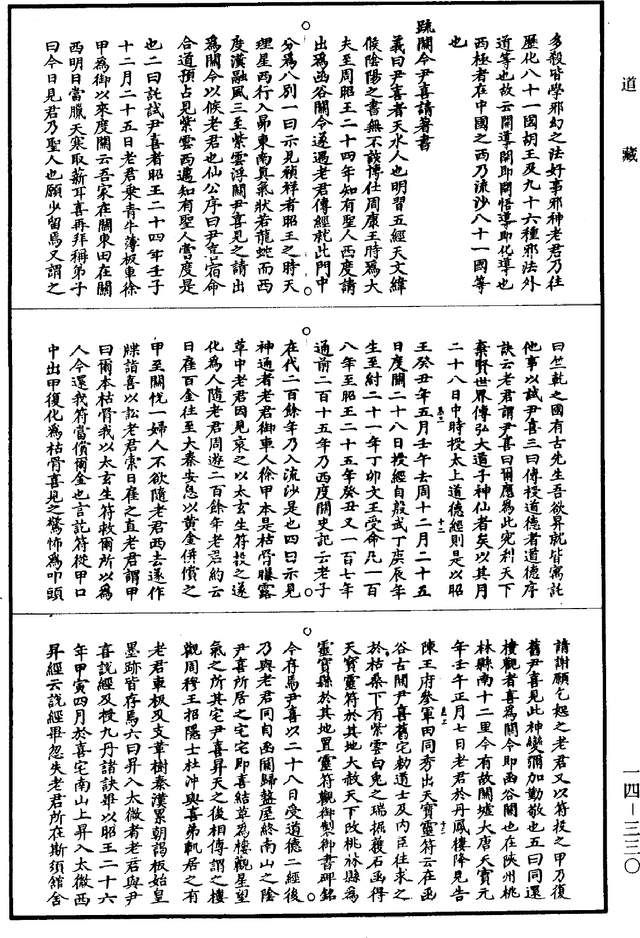 道藏
多殺皆學邪幻之法好事邪神老君乃往
歷化八十一國胡王及九十六種邪法外
道等也故云開導開即開悟導即化導也
西極者在中國之西乃流沙八十一國等
也
疏關令尹喜請著書
義曰尹喜者天水人也明習五經天文緯
候陰陽之書無不該博仕周康王時為大
夫至周昭王二十四年知有聖人西度請
出為函谷關令遂遇老君傳經就此門中
分為八別一曰示見禎祥者昭王之時天
理星西行入昴東南真氣狀若龍蛇而西
度漢融風三至紫雲浮關尹喜見之請出
為關令以候老君也仙公序曰尹喜宿命
合道預占見紫雲西邁知有聖人當度是
也二曰託試尹喜者昭王二十四年壬子
十二月二十五日老君乘青牛薄板車徐
甲為御以來度關云吾家在關東田在關
西明日當臘天寒取薪耳喜再拜稱弟子
曰今日見君乃聖人也願少留焉又謂之
曰竺乾之國有古先生吾欲昇就皆寓託
他事以試尹喜三曰傳授道德者道德序
訣云老君謂尹喜曰爾應為此宛利天下
棄賢世界傳弘大道子神仙者矣以其月
二十八日中時授太上道德經則是以昭
王癸丑年五月壬午去周十二月二十五
日度關二十八日授經自殷武丁庚辰年
生至紂二十一年丁卯文王受命凡一百
八年至昭王二十五年癸丑又一百七年
通前二百十五年乃西度關史記云老子
在代二百餘年乃入流沙是也四曰示見
神通者老君御車人徐甲本是枯骨曝露
草中老君因見哀之以太玄生符投之遂
化為人隨老君周遊二百餘年老君約云
日雇百金往至大秦安息以黃金併償之
甲至關悅一婦人不欲隨老君西去遂作
牒詣喜以訟老君索日雇之直老君謂甲
曰爾本枯骨我以太玄生符救爾所以為
人今還我符當償爾金也言訖符從甲口
中出甲復化為枯骨喜見之驚怖為叩頭
請謝願乞赦之老君又以符投之甲乃復
舊尹喜見此神變彌加勤敬也五曰同還
樓觀者喜為關令即函谷關也在陝州桃
林縣南十二里今有故關墟大唐天寶元
年壬午正月七日老君於丹鳳樓降見告
陳王府參軍田同秀出天寶靈符云在函
谷古關尹喜舊宅勅道士及內臣往求之
於枯桑下有紫雲白兔之瑞掘獲石函得
天寶靈符於其地大赦天下改桃林縣為
靈寶縣於其地置靈符觀御製御書碑銘
今存焉尹喜以二十八日受道德二經後
乃與老君同自函關歸盩厔終南山之陰
尹喜所居之宅宅即喜結草為樓觀星望
氣之所其宅尹喜昇天之後相傳謂之樓
觀周穆王招隱士杜沖與喜弟軌居之有
老君車板及支革樹秦漢累朝謁板始皇
墨跡皆存焉六曰昇入太微者老君與尹
喜說經及授九丹諸訣畢以昭王二十六
年甲寅四月於喜宅南山上昇入太微西
昇經云說經畢忽失老君所在斯須館舍
一四–三三〇